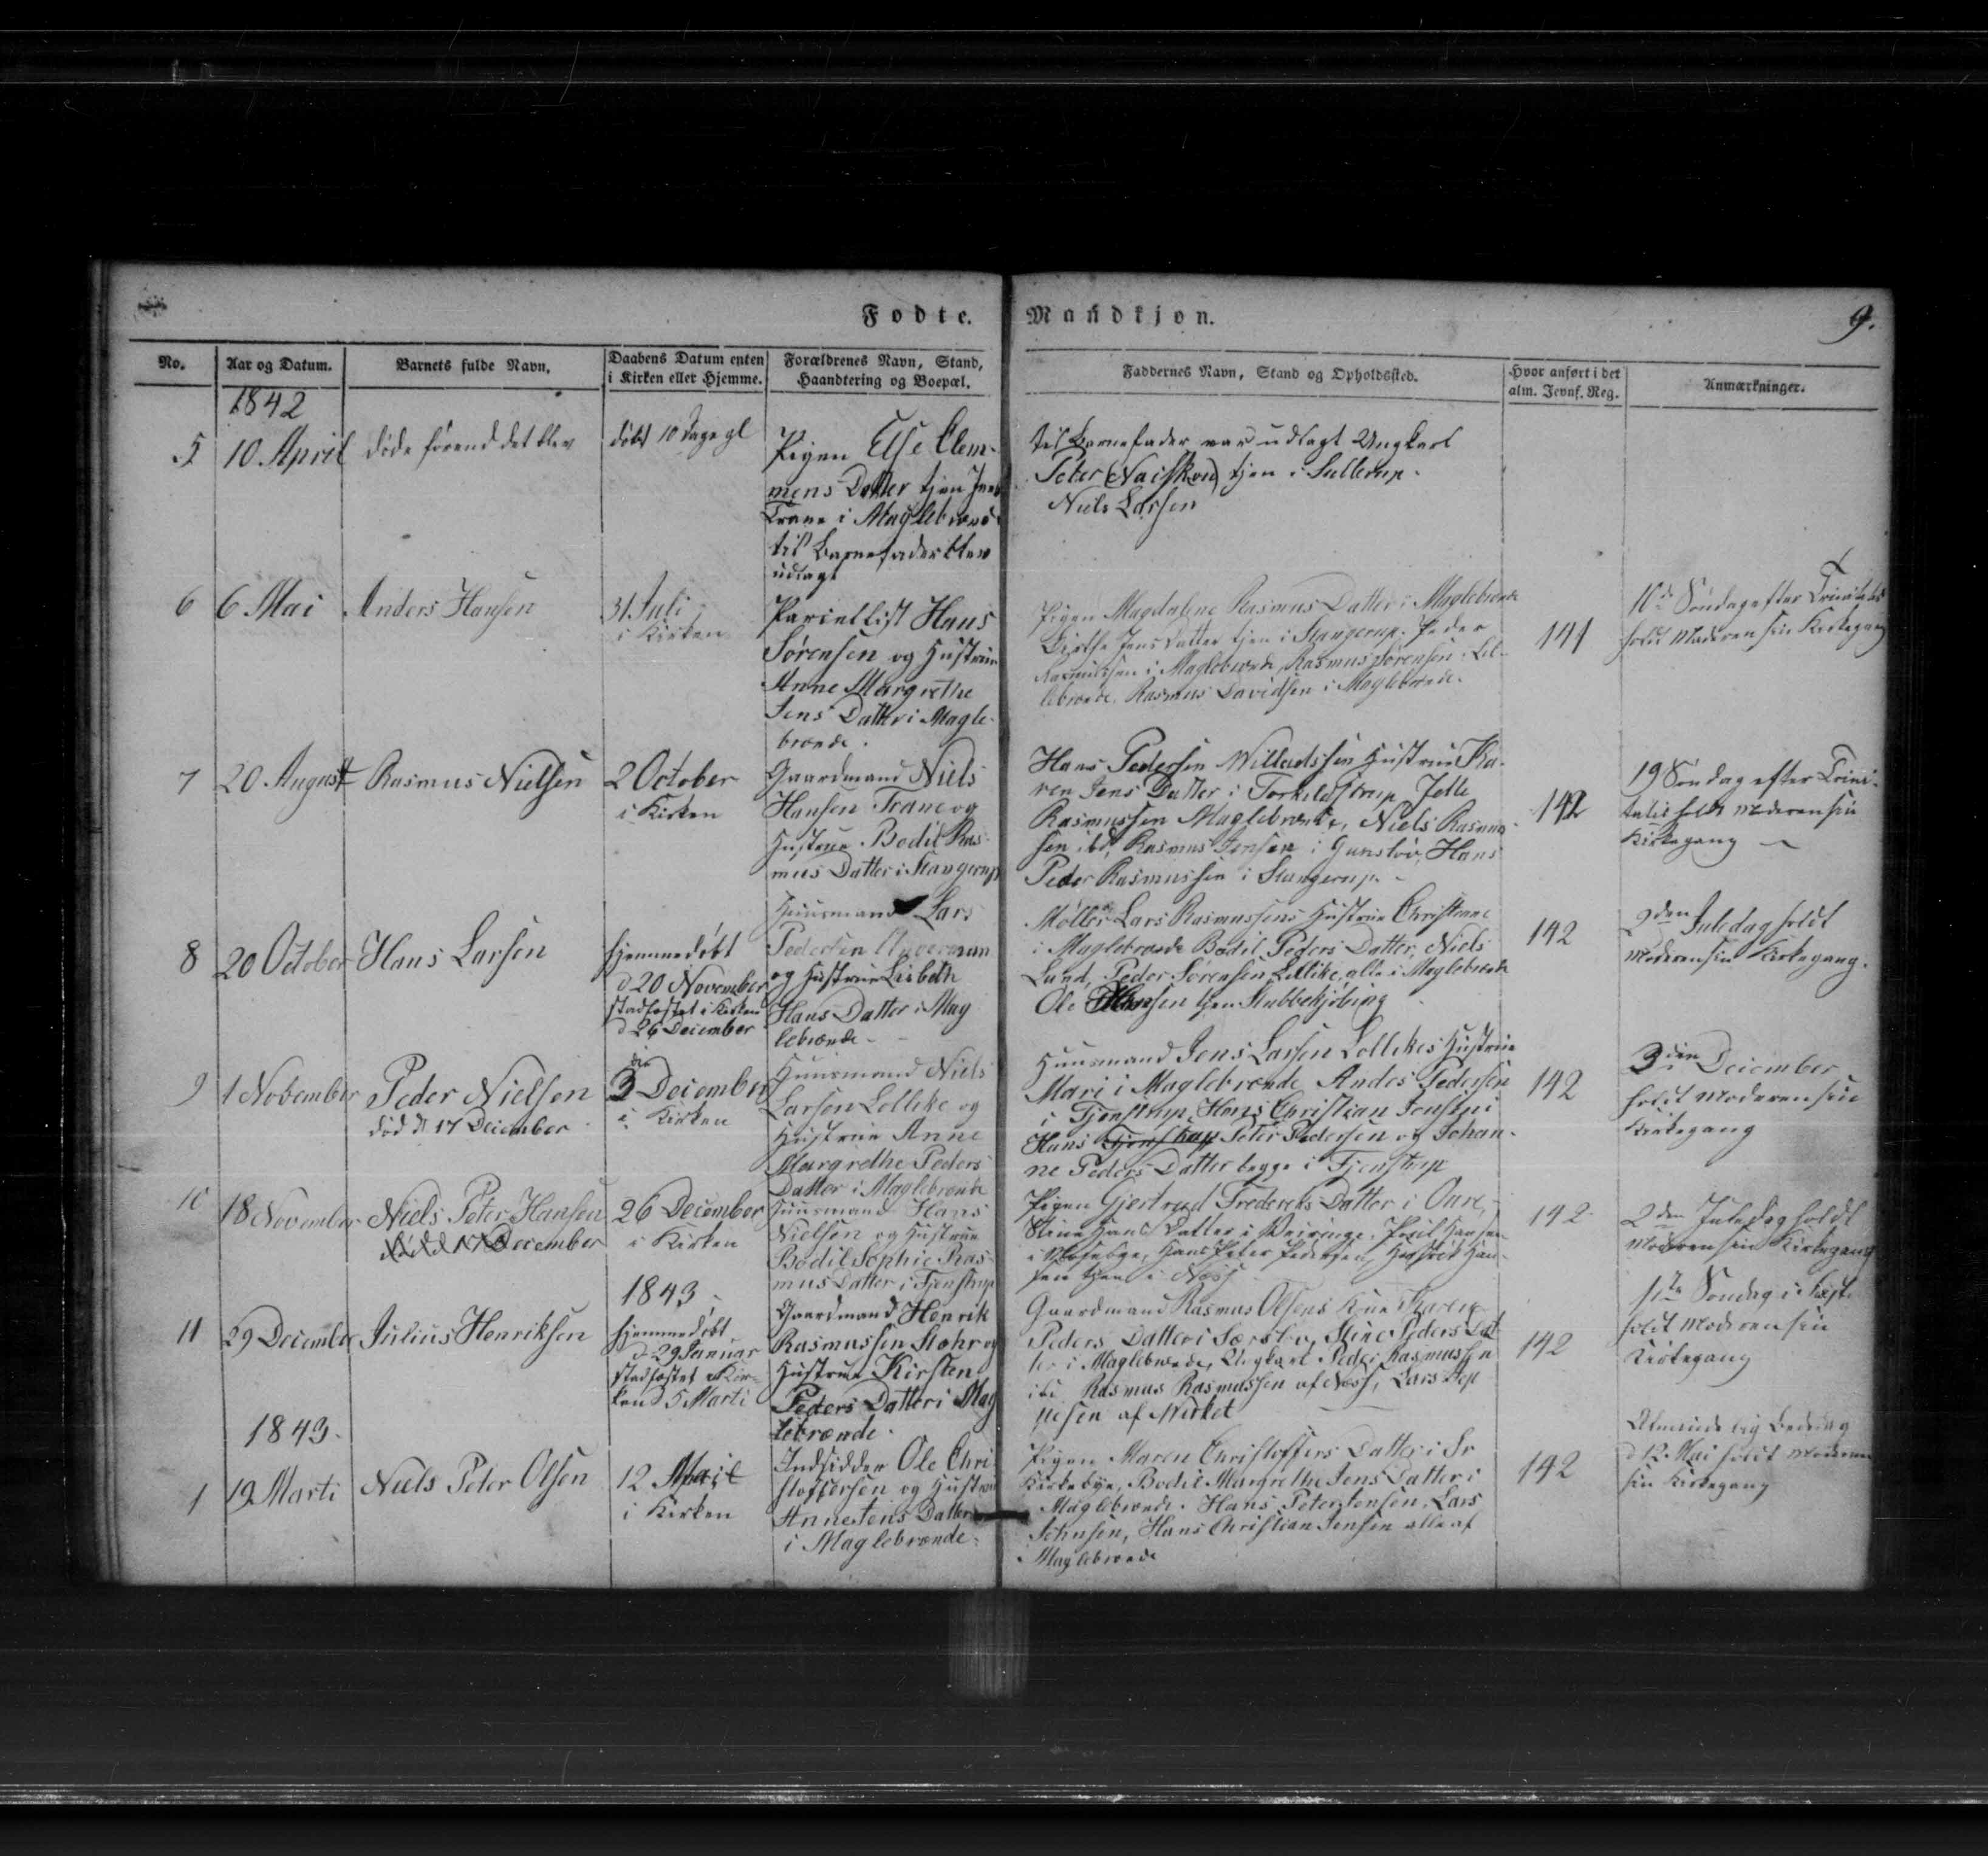 Fødte. Mandkjøn. 9.
No.
Aar og Datum.
Barnets fulde Navn.
Daabens Datum enten
i Kirken eller Hjemme.
Forældrenes Navn, Stand,
Haandtering og Boepæl.
Faddernes Navn, Stand og Opholdssted.
Hvor anført i det
alm. Jevnf. Reg.
Anmærkninger.
1842
5
10 April
døde förend det blev
døbt 10 Dage gl
Pigen Else Clem-
mens Datter tjen Jens
Trane i Maglebrænde
til Barnefader blev
udlagt
til Barnefader var udlagt Ungkarl
Peter tjen i
Niels Larsen
6
6 Mai
Anders Hansen
31 Juli
i Kirken
Parcellist Hans
Sørensen og Hustrue
Anne Margrethe
Jens Datter i Magle-
brænde.
Pigen Magdalene Rasmus Datter i Maglebrænde
Birthe Jens Datter tjen i Stangerup. Peder
Rasmussen i Maglebrænde, Rasmus Sørensen i Lil-
lebrænde, Rasmus Davidsen i Maglebrænde.
141
10de Søndag efter Trinitatis
holdt Moderen sin Kirkegang
7
20 August
Rasmus Nielsen
2 October
i Kirken
Gaardmand Niels
Hansen Trane og
Hustrue Bodil Ras-
mus Datter i Stangerup
Hans Pedersen Willadssen Hustrue Ka-
ren Jens Datter i Torkildstrup Jelle
Rasmussen Maglebrænde, Niels Rasmus-
sen ibd, Rasmus Jensen i Gunslev, Hans
Peder Rasmussen i Stangerup.
142
19 Søndag efter Trini-
tatis holdt Moderen sin
Kirkegang
8
20 October
Hans Larsen
hjemmedøbt
d 20 November
stadfæstet i Kirken
d 26 December
Huusmand Lars
Pedersen
og Hustrue Lisbeth
Hans Datter i Mag
lebrænde
Møller Lars Rasmussens Hustrue Christiane
i Maglebrænde Bodil Peders Datter, Niels
Lund, Peder Sørensen Lollike, alle i Maglebrænde
Ole Hansen tjen Stubbekjøbing
142
2den Juledag holdt
Moderen sin Kirkegang.
9
1 November
Peder Nielsen
død d 17 December
3die December
i Kirken
Huusmand Niels
Larsen Lollike og
Hustrue Anne
Margrethe Peders
Datter i Maglebrænde
Huusmand Jens Larsen Lollikes Hustrue
Mari i Maglebrænde Andes Pedersen
i Fjenstrup, Hans Christian Jensen i
Hans Fjenstrup Peter Pedersen og Johan-
ne Peders Datter begge i Fjenstrup
142
3die December
holdt Moderen sin
Kirkegang
10
18 November
Niels Peter Hansen
død d 17 December
26 December
i Kirken
Huusmand Hans
Nielsen og Hustrue
Bodil Sophie Ras-
mus Datter i Fjenstrup
Pigen Gjertrud Frederiks Datter i Ovre,
Stine Hans Datter i
Hans Peter Pedersen Han-
sen tjen i Næs
142
2den Juledag holdt
Moderen sin Kirkegang
11
29 December
Julius Henriksen
1843
hjemmedøbt
d 29 Januar
stadfæstet i Kir-
ken d 5 Marti
Gaardmand Henrik
Rasmussen Stohr og
Hustrue Kirsten
Peders Datter i Mag
lebrænde.
Gaardmand Rasmus Olsens Kone Maren
Peders Datter i Særslev, Stine Peders Dat-
ter i Maglebrænde, Ungkarl Peder Rasmussen
ibd Rasmus Rasmussen af Næs, Lars Jep
pesen af Virket
142
1ste Søndag i Faste
holdt Moderen sin
Kirkegang
1843.
1
19 Marti
Niels Peter Olsen
12 Mai
i Kirken
Indsidder Ole Chri-
stoffersen og Hustrue
Anne Jens Datter
i Maglebrænde.
Pigen Maren Christoffers Datter i Sr
Kirkebye, Bodil Margrethe Jens Datter i
Maglebrænde. Hans Peter Jensen, Lars
Johnsen, Hans Christian Jensen alle af
Maglebrænde
142
Almindelig Bededag
d 12 Mai holdt Moderen
sin Kirkegang